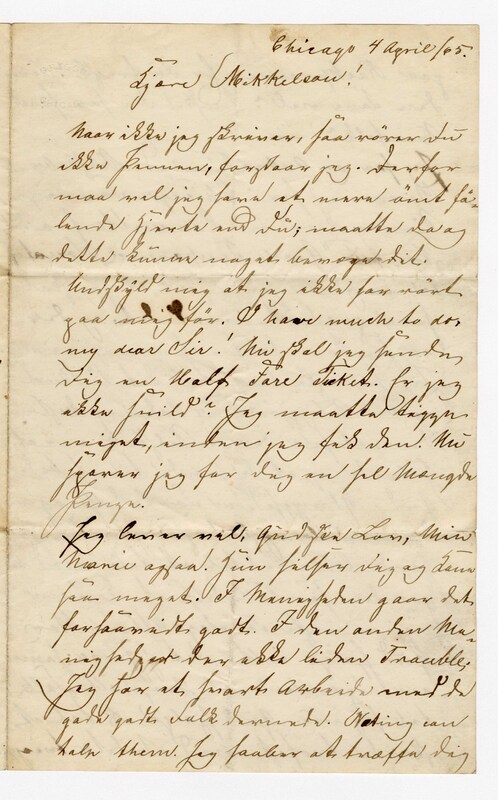 Chicago 4 April /65.
Kjære Mikkelson!
Naar ikke jeg skriver, saa rörer Du
ikke Pennen, forstaar jeg. Derfor
maa vel jeg have et mere ömt fö-
lende Hjerte end Du; maatte da og
dette kunne noget bevæge dit.
Undskyld mig at jeg ikke har rört
paa mig för. I have much to do,
my dear Sir! Nu skal jeg sende
Dig en Half Fare Ticket. Er jeg
ikke snild? Jeg maatte tigge
meget, inden jeg fik den. Nu
sparer jeg for Dig en hel Mængde
Penge.
Jeg lever vel, Gud ske Lov, Min
Marie ogsaa! Hun hilser Dig og Kone
saa meget. I Menigheden gaar det
forsaavidt godt. I den anden Me-
nighed er der ikke liden Trouble.
Jeg har et svart Arbeide med de
gode godt Folk dernede. Noting can
help them. Jeg haaber at træffe Dig